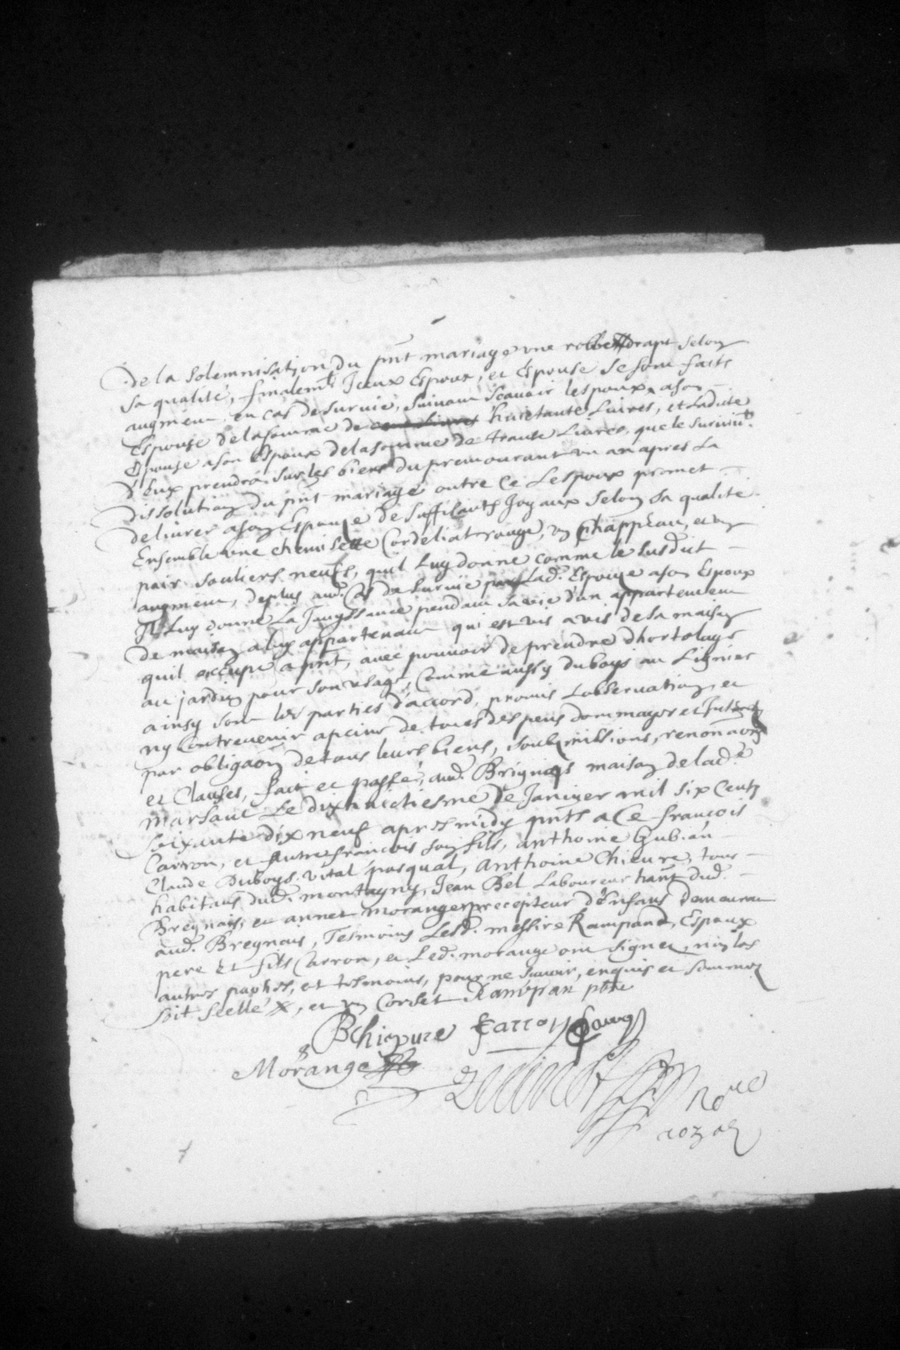 de la solemnisation du pnt mariage une robbe drapt selon
sa qualité, finalemt Iceux Espoux, et Espouse se sont faits
augment en cas de survie, suivant scavoir lespoux a son
Espouse de la somme de huictante Livres, et ladicte
Espouse a son Espoux de la somme de trante Livres, que le survivt
d'Eux prendra sur les biens du premourant un an apres La
dissolution du pnt mariage outre ce Lespoux promet
delivrer a son Espouse de suffisants Joyaux selon sa qualité
Ensemble une chemisette Cordeliat rouge, un Chappeau, et un
pair souliers neufs, quil Luy donne comme le susdict
augment, de plus aud. cas de survie Lad. Espouse a son Espoux
Il Luy donne La Jouyssance pendant sa vie d'un appartement
de maison a luy appartenant qui est vis a vis de la maison
quil occupe a pnt, avec pouvoir de prendre d'hortolage
au jardin pour son usage, Comme aussy du boys au Lignier
ainsy sont les parties d'accord, promis Lobservation, et
ny Contrevenir a peine de tous despens dommages et Interests
par obligaon de tous leurs biens, soubzmissions, renonaons
et Clauses, fait et passé, aud. Brignais maison de lad.
marsaut Le dixhuictiesme de Janvier mil six Centz
soixante dix neuf apres midy pnts a Ce françois
Carron, et autre françois son fils, anthoine Gubian
Claude Duboys, vital pasqual, Anthoine Chieure, tous
habitans dud. montagny, Jean Bel Laboureur habt dud.
Breynais, et annet moranger precepteur d'Enfans demeurant
aud. Breynais, Tesmoins Lesd. messire Rampand, Espoux
pere et fils Carron, et Led. morange ont signe, non les
autres parties, et tesmoins, pour ne scavoir, enquis et sommez
soit scellé, et un Corset Rampan pbre
B chiepure Carron
Morange